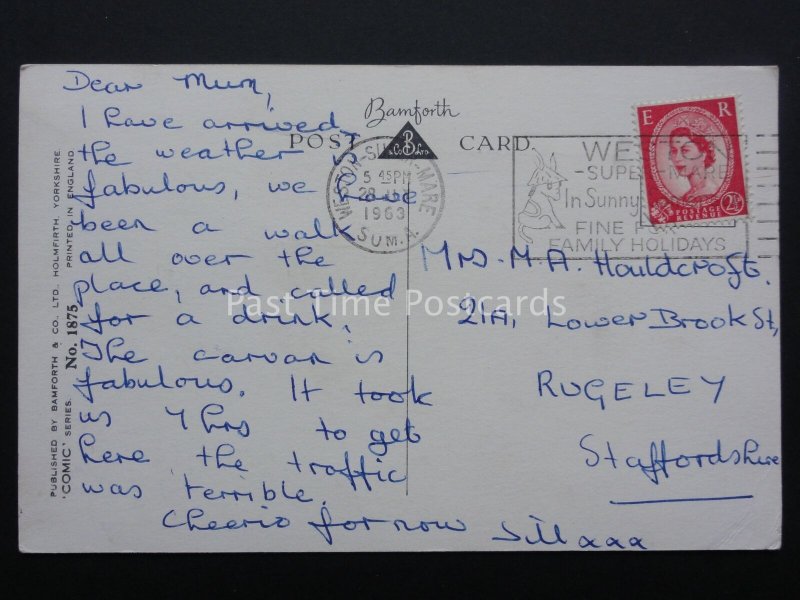 Dear Mum,
I have arrived
the weather is
fabulous, we have
been a walk
all over the
place, and called
for a drink.
The carvan is
fabulous. It took
us 7 hrs to get
here the traffic
was terrible.
Cheerio for now Jill xxx
Bamforth
POST CARD
B
& Co. Ltd.
WESTON-SUPER-MARE
5 45PM
1963
SOM.
WESTON
-SUPER-MARE
In Sunny
FINE FOR
FAMILY HOLIDAYS
E R
POSTAGE
REVENUE
2½
Mrs. M. A. Houldcroft.
21A, Lower Brook St,
RUGELEY
Staffordshire
PUBLISHED BY BAMFORTH & CO., LTD., HOLMFIRTH, YORKSHIRE
'COMIC' SERIES. No. 1875 PRINTED IN ENGLAND
Past Time Postcards